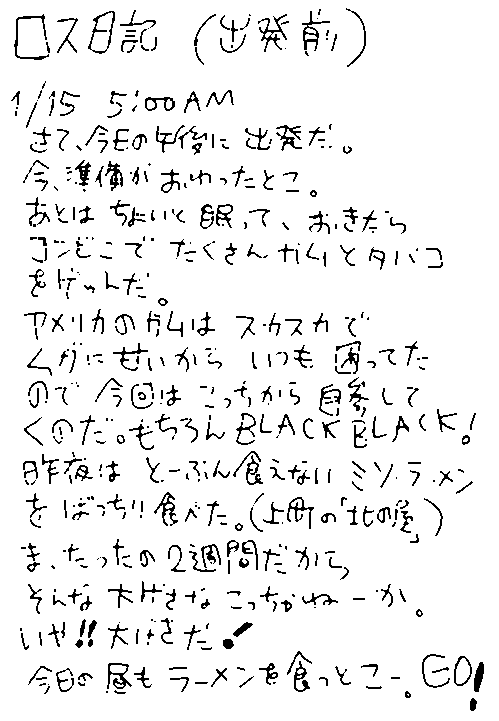 ロス日記 (出発前)
1/15 5:00AM
さて、今日の午後に出発だ。
今、準備がおわったとこ。
あとは ちょいと 眠って、おきたら
コンビニで たくさん ガムとタバコ
をゲットだ。
アメリカのガムは スカスカで
ムダに甘いから いつも 困ってた
ので 今回は こっちから 自参して
くのだ。もちろん BLACK BLACK!
昨夜は とーぶん食えない ミソ・ラーメン
を ばっち!! 食べた。(上町の「北の屋」)
ま、たったの2週間だから
そんな 大げさな こっちゃねーか。
いや!! 大げさだ!
今日の昼も ラーメンを食っとこー。GO!